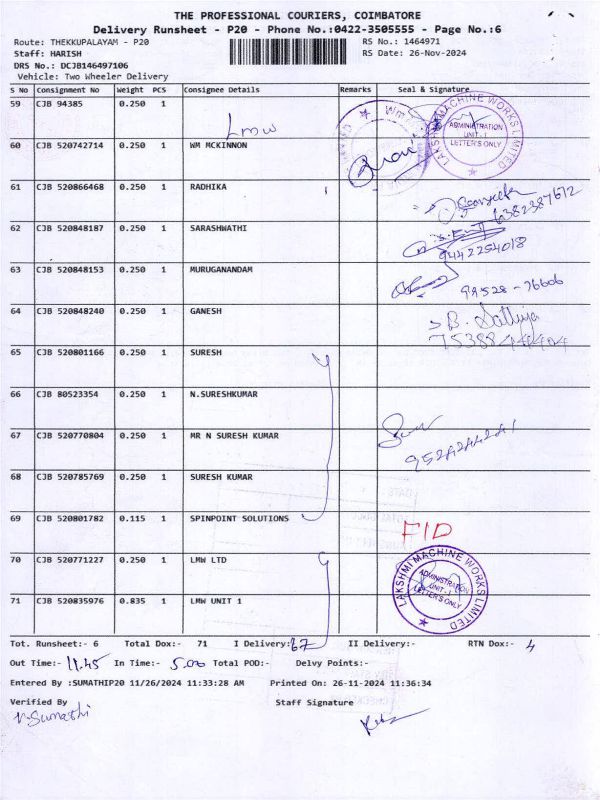 THE PROFESSIONAL COURIERS, COIMBATORE
Delivery Runsheet - P20 - Phone No.:0422-3505555 - Page No.:6
Route: THEKKUPALAYAM - P20
RS No.: 1464971
Staff: HARISH
RS Date: 26-Nov-2024
DRS No.: DCJB146497106
Vehicle: Two Wheeler Delivery
S No Consignment No Weight PCS Consignee Details Remarks Seal & Signature
59 CJB 94385 0.250 1
Lmw
LAKSHMI MACHINE WORKS LIMITED
ADMINISTRATION
UNIT-I
LETTER'S ONLY
60 CJB 520742714 0.250 1 WM MCKINNON
61 CJB 520866468 0.250 1 RADHIKA
6382387612
62 CJB 520848187 0.250 1 SARASHWATHI
9442254018
63 CJB 520848153 0.250 1 MURUGANANDAM
99528-76606
64 CJB 520848240 0.250 1 GANESH
B. Sathya
65 CJB 520801166 0.250 1 SURESH
66 CJB 80523354 0.250 1 N.SURESHKUMAR
67 CJB 520770804 0.250 1 MR N SURESH KUMAR
68 CJB 520785769 0.250 1 SURESH KUMAR
69 CJB 520801782 0.115 1 SPINPOINT SOLUTIONS
FID
70 CJB 520771227 0.250 1 LMW LTD
LAKSHMI MACHINE WORKS LIMITED
ADMINISTRATION
UNIT-I
LETTER'S ONLY
71 CJB 520835976 0.835 1 LMW UNIT 1
Tot. Runsheet:- 6 Total Dox:- 71 I Delivery:- 67 II Delivery:- RTN Dox:- 4
Out Time:- 11.45 In Time:- 5.00 Total POD:- Delvy Points:-
Entered By :SUMATHIP20 11/26/2024 11:33:28 AM Printed On: 26-11-2024 11:36:34
Verified By Staff Signature
V.Sumathi